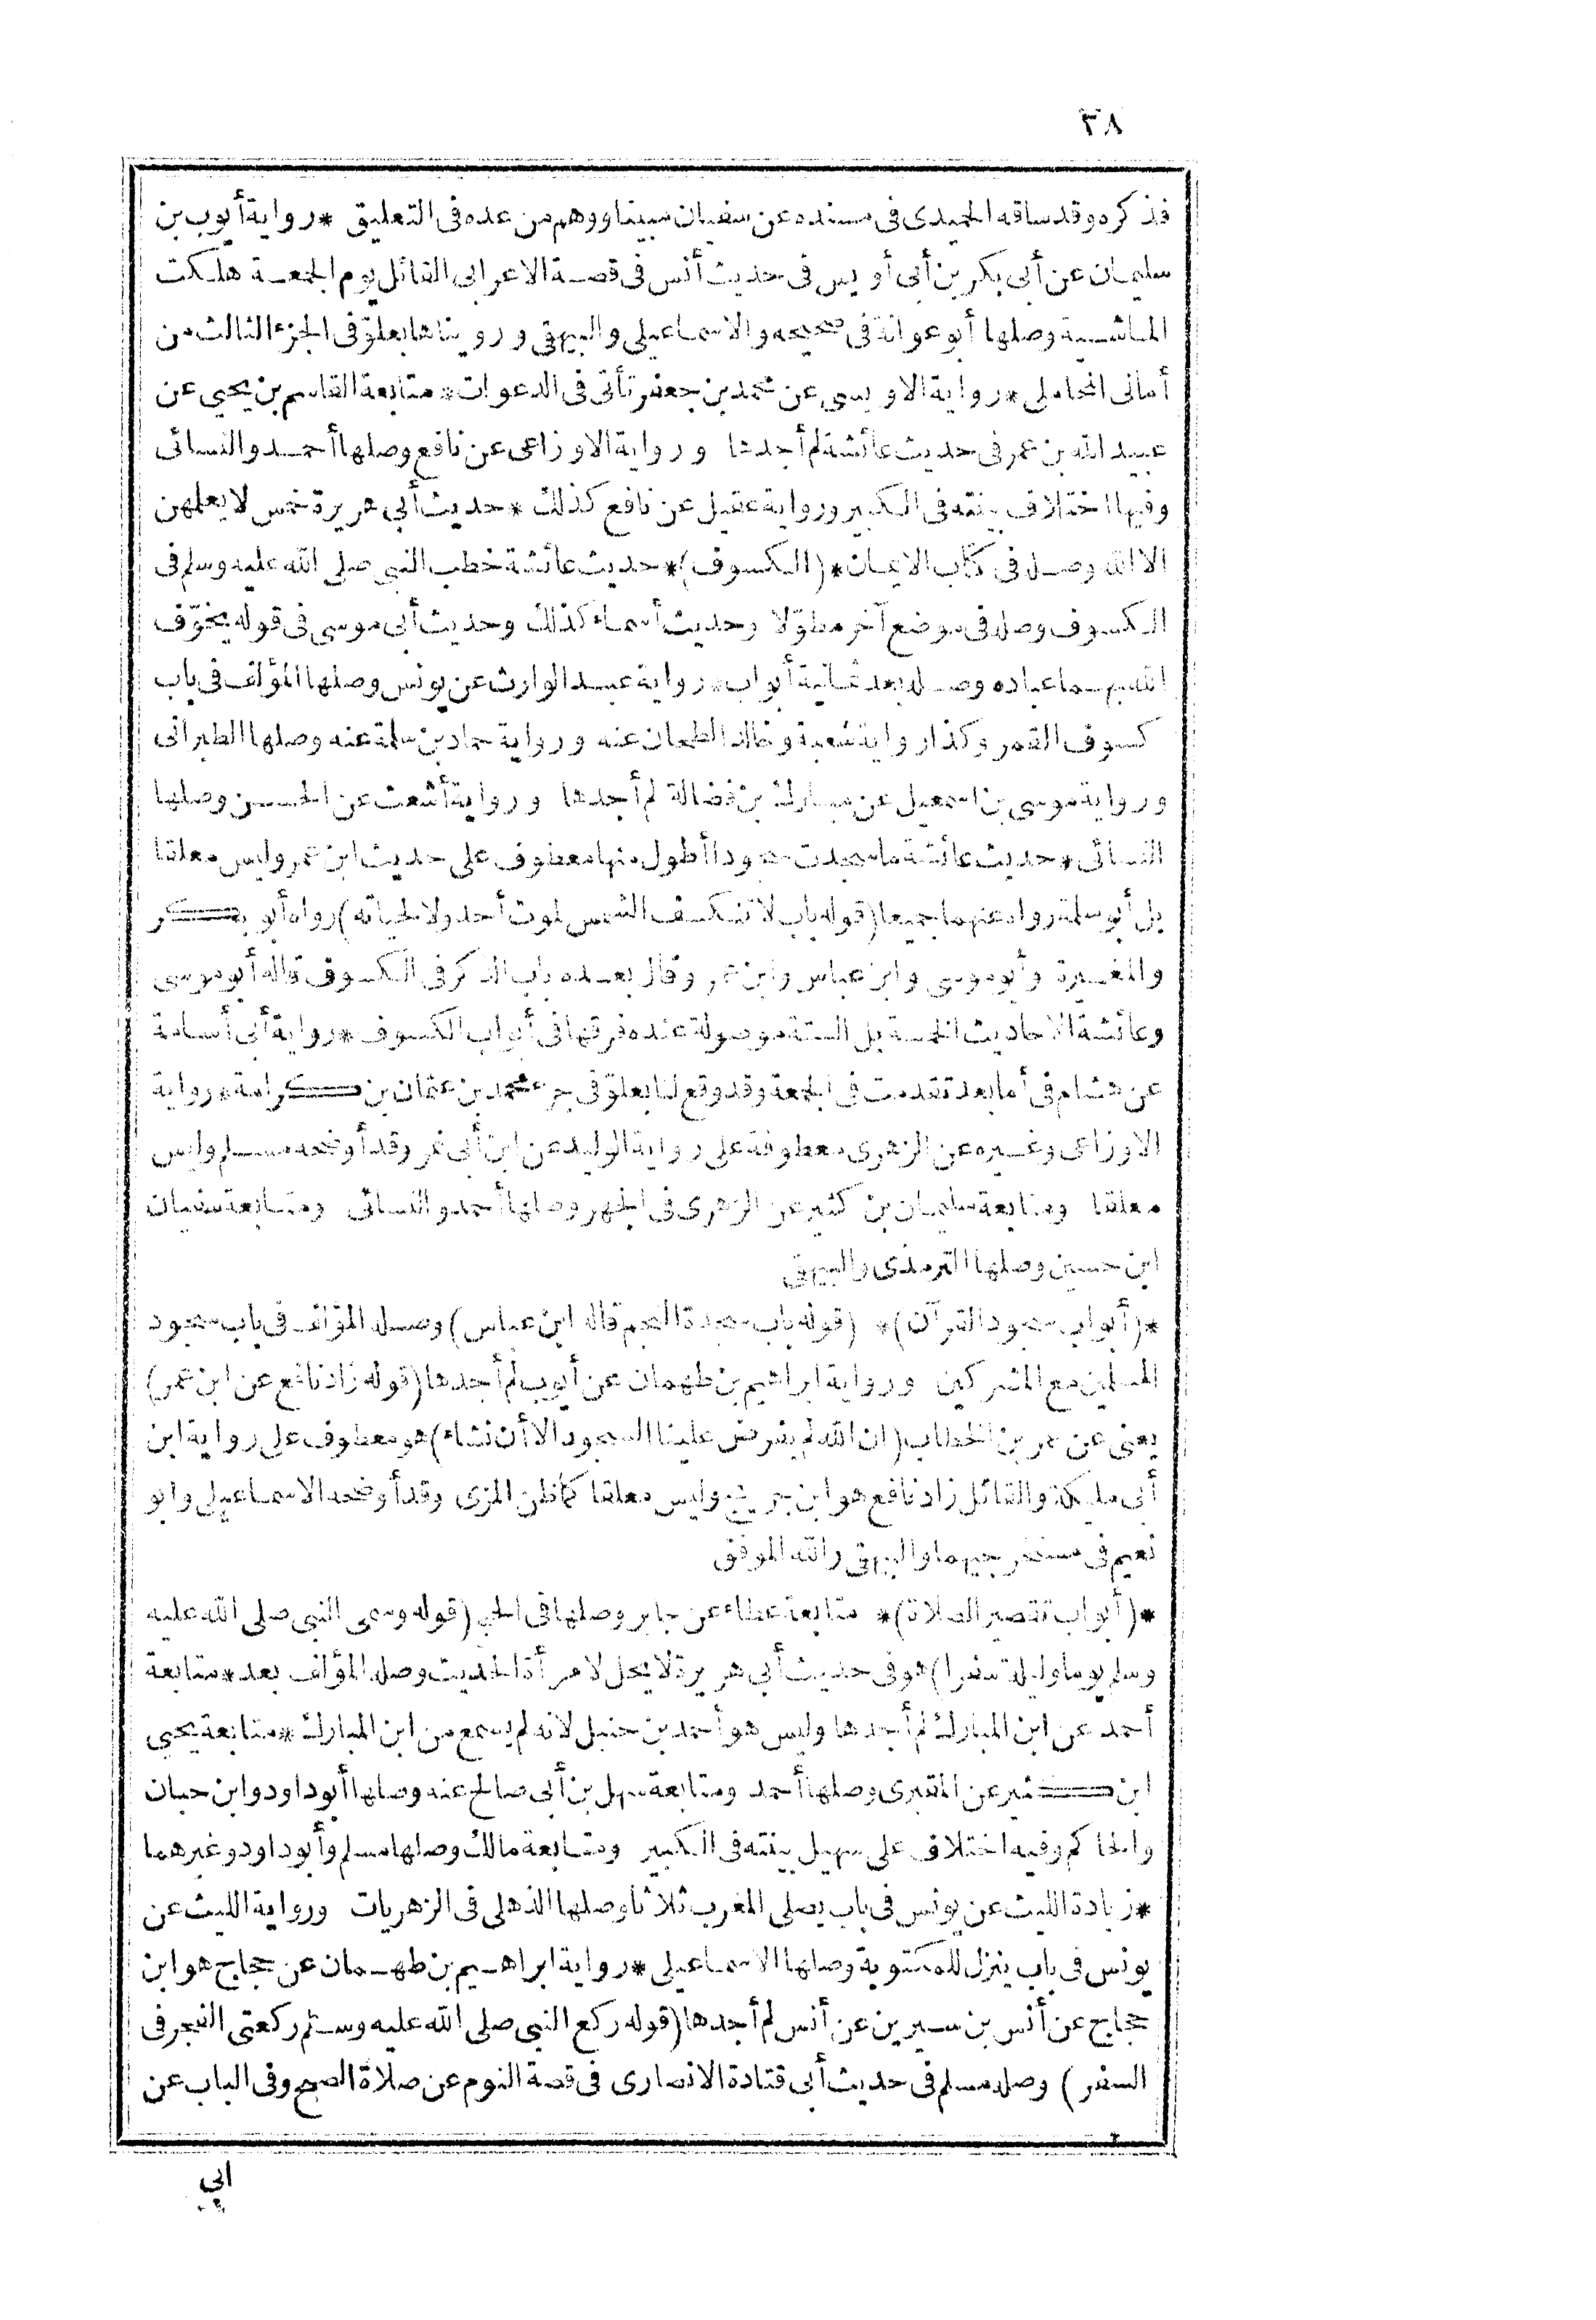 ٣٨
فذكره وقد ساقه الحميدى فى مسنده عن سفيان مبينا ووهم من عده فى التعليق * رواية أيوب بن
سليمان عن أبى بكر بن أبى أويس فى حديث أنس فى قصة الاعرابى القائل يوم الجمعة هلكت
الماشية وصلها أبو عوانة فى صحيحه والاسماعيلى والبيهقى ورويناها بعلوّ فى الجزء الثالث من
أمالى المحاملى * رواية الاويسى عن محمد بن جعفر تأتى فى الدعوات * متابعة القاسم بن يحيى عن
عبيد الله بن عمر فى حديث عائشة لم أجدها ورواية الاوزاعى عن نافع وصلها أحمد والنسائى
وفيها اختلاف بينته فى الكبير ورواية عقيل عن نافع كذلك * حديث أبى هريرة خمس لا يعلمهن
الا الله وصل فى كتاب الايمان * (الكسوف) * حديث عائشة خطب النبى صلى الله عليه وسلم فى
الكسوف وصله فى موضع آخر مطوّلا وحديث أسماء كذلك وحديث أبى موسى فى قوله يخوّف
الله بهما عباده وصله بعد ثمانية أبواب * رواية عبد الوارث عن يونس وصلها المؤلف فى باب
كسوف القمر وكذا رواية شعبة وخالد الطحان عنه ورواية حماد بن سلمة عنه وصلها الطبرانى
ورواية موسى بن اسمعيل عن مبارك بن فضالة لم أجدها ورواية أشعث عن الحسن وصلها
النسائى * حديث عائشة ما سجدت سجودا أطول منها معطوف على حديث ابن عمر وليس معلقا
بل أبو سلمة رواه عنهما جميعا (قوله باب لا تنكسف الشمس لموت أحد ولا لحياته) رواه أبو بكر
والمغيرة وأبو موسى وابن عباس وابن عمر وقال بعده باب الذكر فى الكسوف قاله أبو موسى
وعائشة الاحاديث الخمسة بل الستة موصولة عنده فرقها فى أبواب الكسوف * رواية أبى أسامة
عن هشام فى أما بعد تقدمت فى الجمعة وقد وقع لنا بعلوّ فى جزء محمد بن عثمان بن كرامة * رواية
الاوزاعى وغيره عن الزهرى معطوفة على رواية الوليد عن ابن أبى نمر وقد أوضحه مسلم وليس
معلقا ومتابعة سليمان بن كثير عن الزهرى فى الجهر وصلها أحمد والنسائى ومتابعة سفيان
ابن حسين وصلها الترمذى والبيهقى
* (أبواب سجود القرآن) * (قوله باب سجدة النجم قاله ابن عباس) وصله المؤلف فى باب سجود
المسلمين مع المشركين ورواية ابراهيم بن طهمان عن أيوب لم أجدها (قوله زاد نافع عن ابن عمر)
يعنى عن عمر بن الخطاب (ان الله لم يفرض علينا السجود الا أن نشاء) هو معطوف على رواية ابن
أبى مليكة والقائل زاد نافع هو ابن جريج وليس معلقا كما ظن المزى وقد أوضحه الاسماعيلى وابو
نعيم فى مستخرجيهما والبيهقى والله الموفق
* (أبواب تقصير الصلاة) * متابعة عطاء عن جابر وصلها فى الحج (قوله وسمى النبى صلى الله عليه
وسلم يوما وليلة سفرا) هو فى حديث أبى هريرة لا يحل لامرأة الحديث وصله المؤلف بعد * متابعة
أحمد عن ابن المبارك لم أجدها وليس هو أحمد بن حنبل لانه لم يسمع من ابن المبارك * متابعة يحيى
ابن كثير عن المقبرى وصلها أحمد ومتابعة سهل بن أبى صالح عنه وصلها أبو داود وابن حبان
والحاكم وفيه اختلاف على سهيل بينته فى الكبير ومتابعة مالك وصلها مسلم وأبو داود وغيرهما
* زيادة الليث عن يونس فى باب يصلى المغرب ثلاثا وصلها الذهلى فى الزهريات ورواية الليث عن
يونس فى باب ينزل للمكتوبة وصلها الاسماعيلى * رواية ابراهيم بن طهمان عن حجاج هو ابن
حجاج عن أنس بن سيرين عن أنس لم أجدها (قوله ركع النبى صلى الله عليه وسلم ركعتى الفجر فى
السفر) وصله مسلم فى حديث أبى قتادة الانصارى فى قصة النوم عن صلاة الصبح وفى الباب عن
ابى